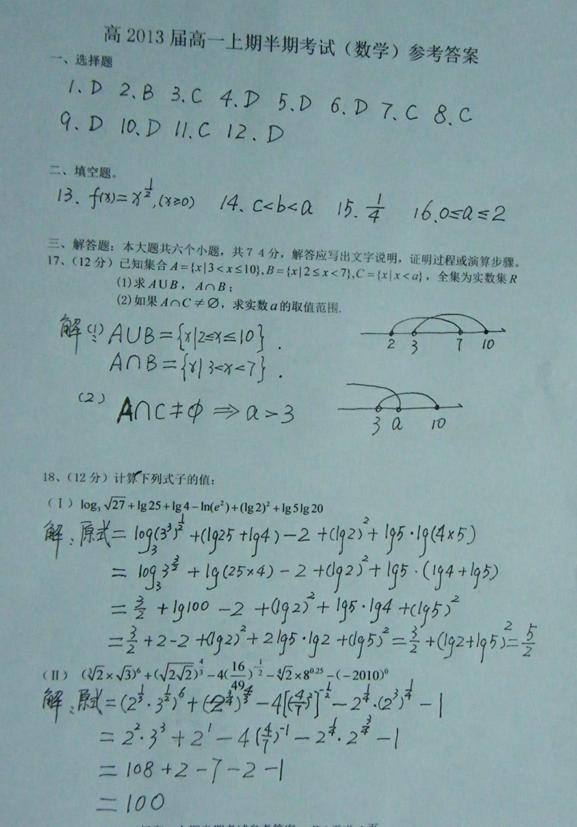 高 2013 届高一上期半期考试（数学）参考答案
一、选择题
1.D 2.B 3.C 4.D 5.D 6.D 7.C 8.C
9.D 10.D 11.C 12.D
二、填空题。
13. f(x)=x^{1/2},(x≥0) 14. c<b<a 15. 1/4 16. 0≤a≤2
三、解答题：本大题共六个小题，共７４分，解答应写出文字说明，证明过程或演算步骤。
17、(12 分) 已知集合 A={x|3<x≤10}, B={x|2≤x<7}, C={x|x<a}，全集为实数集 R
(1)求 A∪B，A∩B；
(2)如果 A∩C≠∅，求实数 a 的取值范围.
解 (1) A∪B={x|2≤x≤10}.
2 3 7 10
A∩B={x|3<x<7}.
(2) A∩C≠φ ⇒ a>3
3 a 10
18、(12 分) 计算下列式子的值：
(Ⅰ) log₃√27+lg25+lg4−ln(e²)+(lg2)²+lg5lg20
解：原式=log₃(3³)^{1/2}+(lg25+lg4)−2+(lg2)²+lg5·lg(4×5)
=log₃3^{3/2}+lg(25×4)−2+(lg2)²+lg5·(lg4+lg5)
=3/2+lg100−2+(lg2)²+lg5·lg4+(lg5)²
=3/2+2−2+(lg2)²+2lg5·lg2+(lg5)²=3/2+(lg2+lg5)²=5/2
(Ⅱ) (∛2×√3)⁶+(√(2√2))^{4/3}−4(16/49)^{-1/2}−∜2×8^{0.25}−(−2010)⁰
解：原式=(2^{1/3}·3^{1/2})⁶+(2^{3/4})^{4/3}−4[(4/7)²]^{-1/2}−2^{1/4}·(2³)^{1/4}−1
=2²·3³+2¹−4(4/7)^{-1}−2^{1/4}·2^{3/4}−1
=108+2−7−2−1
=100